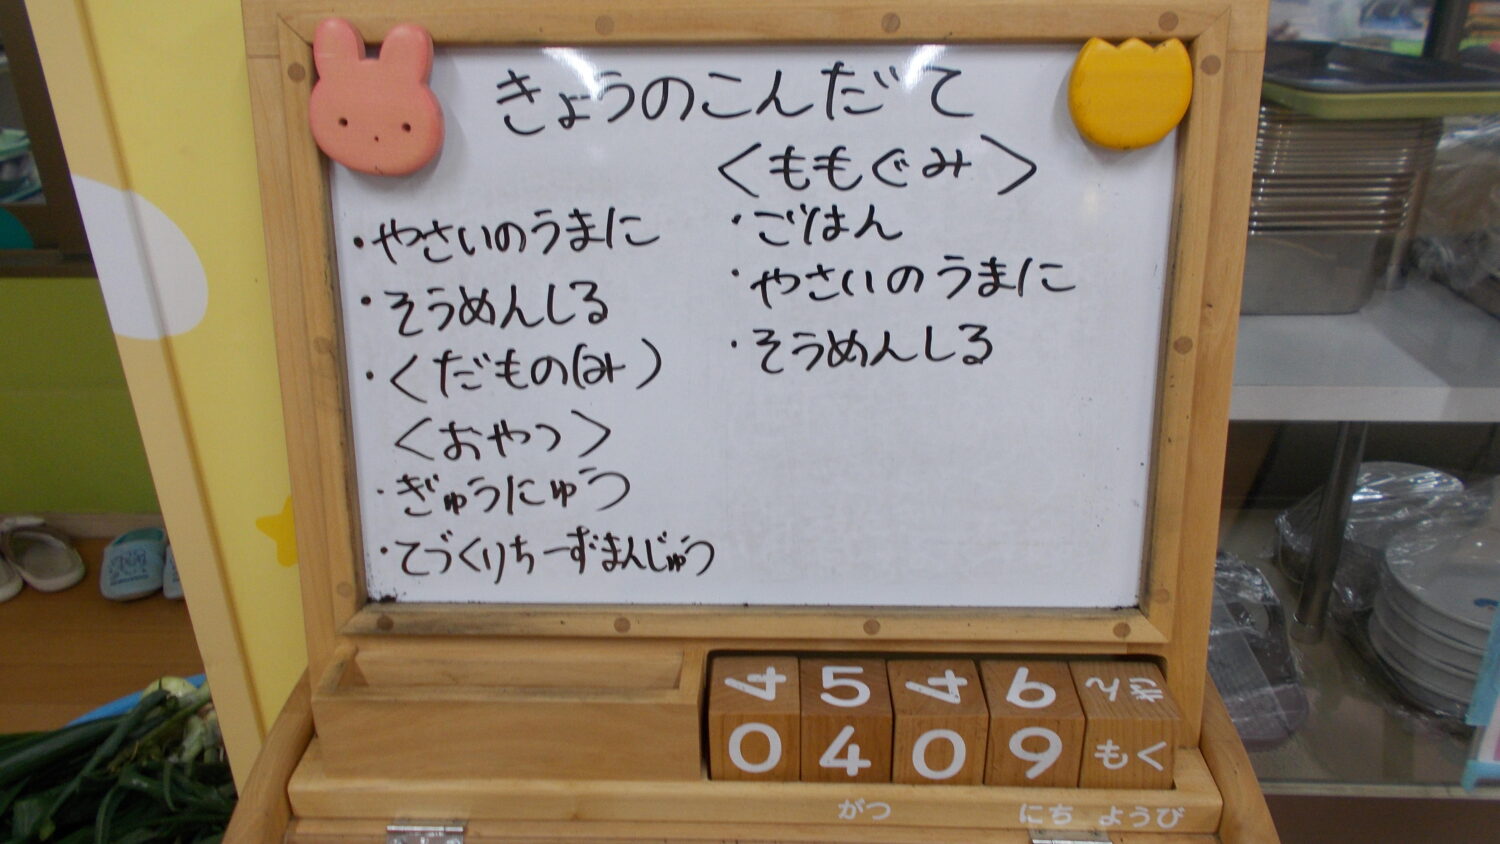 きょうのこんだて
・やさいのうまに
・そうめんしる
・くだもの(みせ)
<おやつ>
・ぎゅうにゅう
・てづくりちーずまんじゅう
<ももぐみ>
・ごはん
・やさいのうまに
・そうめんしる
4 5 4 6
0 4 0 9 もく
がつ にち ようび